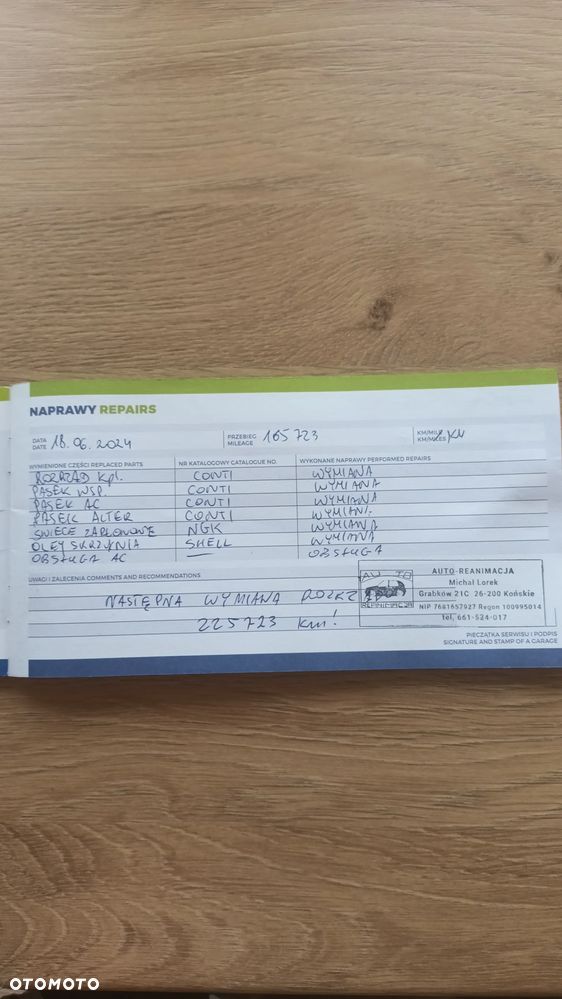 NAPRAWY REPAIRS
DATA DATE 18.06.2024 PRZEBIEG MILEAGE 165 723 KM/MILE KM/MILES KM
WYMIENIONE CZĘŚCI REPLACED PARTS NR KATALOGOWY CATALOGUE NO. WYKONANE NAPRAWY PERFORMED REPAIRS
ROZRZĄD Kpl. CONTI WYMIANA
PASEK WSP. CONTI WYMIANA
PASEK AC CONTI WYMIANA
PASEK ALTER CONTI WYMIAN.
ŚWIECE ZAPŁONOWE NGK WYMIANA
OLEJ SKRZYNIA SHELL WYMIANA
OBSŁUGA AC — OBSŁUGA
UWAGI I ZALECENIA COMMENTS AND RECOMMENDATIONS
NASTĘPNA WYMIANA ROZRZ
225723 km!
AUTO
REANIMACJA
AUTO-REANIMACJA
Michał Lorek
Grabków 21C 26-200 Końskie
NIP 7681657927 Regon 100995014
tel. 661-524-017
PIECZĄTKA SERWISU I PODPIS
SIGNATURE AND STAMP OF A GARAGE
OTOMOTO